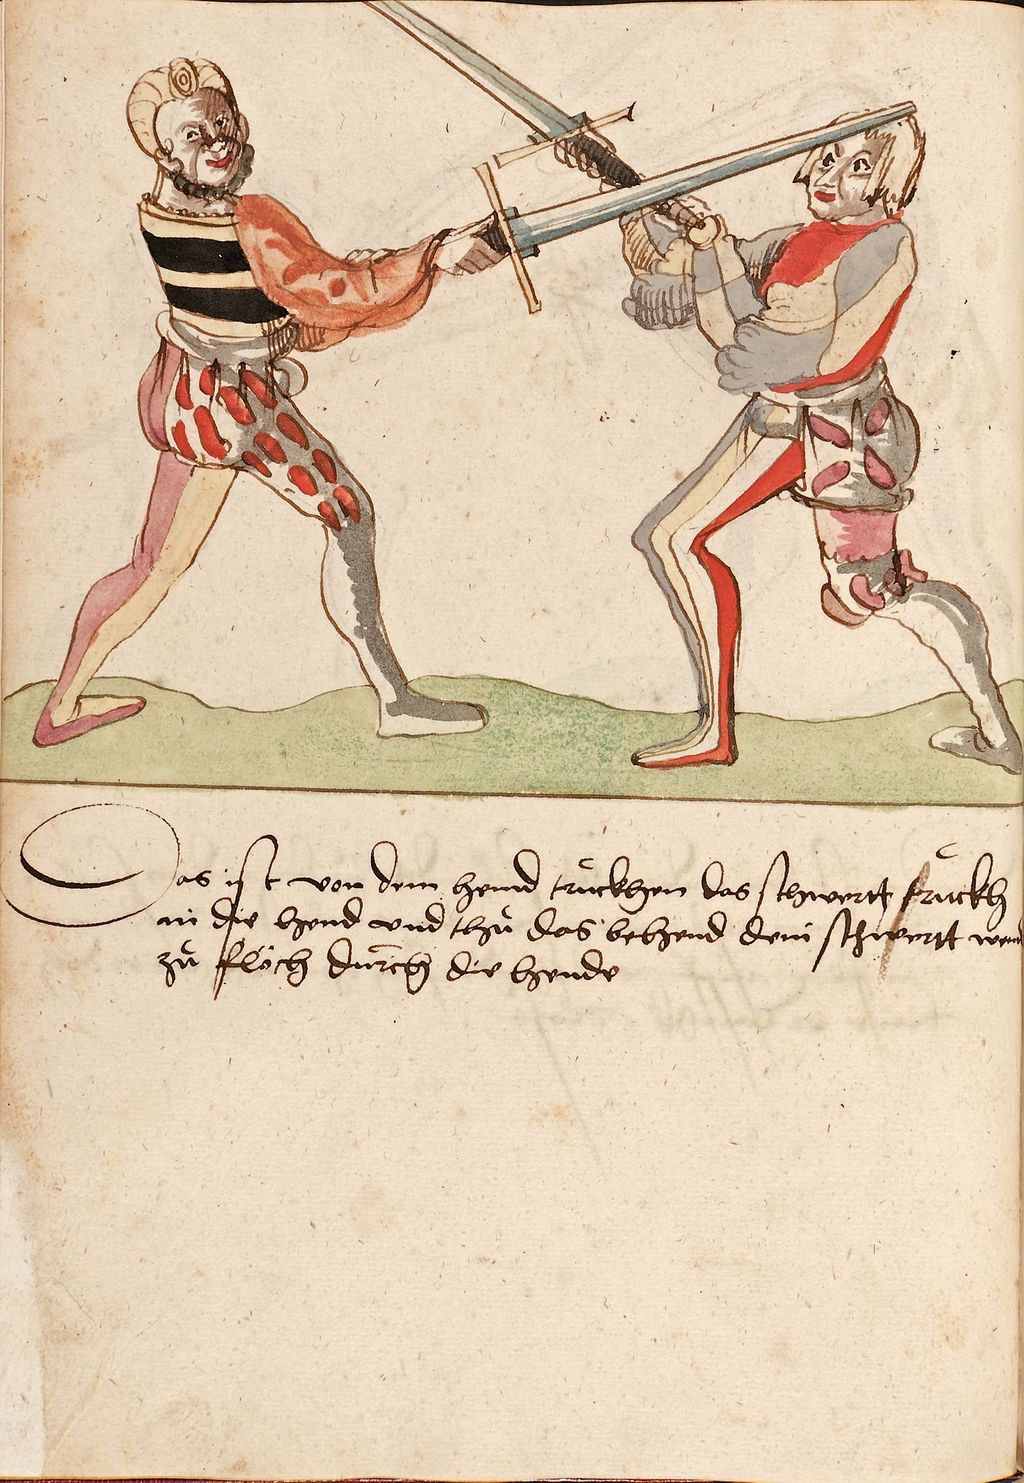 Das ist von dem hennd trückhen das schwertt trückh
in die hend und thů das behend dein schwertt wend
zů flöch durch die hende